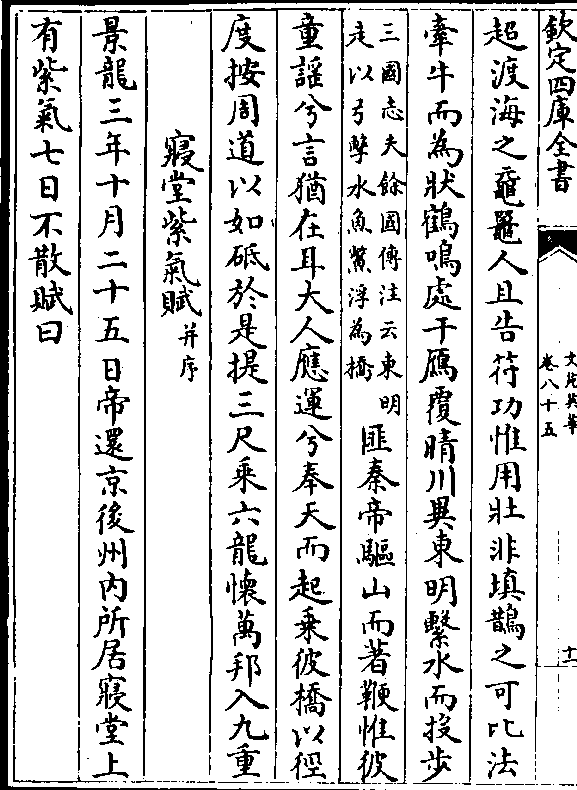 欽定四庫全書
文苑英華
卷八十五
十一
超渡海之黿鼉人且告符功惟用壯非填鵲之可比法
牽牛而為狀鶴鳴處干鴈覆晴川異東明擊水而投步
三國志夫餘國傳注云東明
走以弓擊水魚鱉浮為橋
匪秦帝驅山而著鞭惟彼
童謡兮言猶在耳大人應運兮奉天而起乗彼橋以徑
度按周道以如砥於是提三尺乘六龍懷萬邦入九重
寢堂紫氣賦并序
景龍三年十月二十五日帝還京後州內所居寢堂上
有紫氣七日不散賦曰